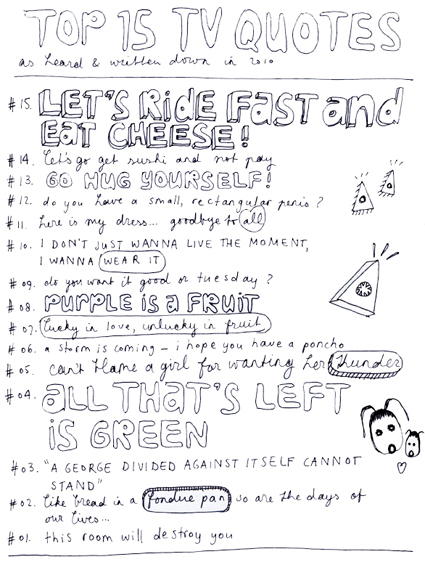 TOP 15 TV QUOTES
as heard & written down in 2010
#15. LET'S RiDE FaST and
EaT CHEESE!
#14. let's go get sushi and not pay
#13. GO HUG YOURSELF!
#12. do you have a small, rectangular penis?
#11. here is my dress... goodbye to all
#10. I DON'T JUST WANNA LIVE THE MOMENT,
I WANNA WEAR IT
#09. do you want it good or tuesday?
#08. PURPLE iS a FRUiT
#07. lucky in love, unlucky in fruit
#06. a storm is coming – i hope you have a poncho
#05. can't blame a girl for wanting her thunder
#04. aLL THaT'S LEFT
iS GREEN
#03. "A GEORGE DIVIDED AGAINST ITSELF CANNOT
STAND"
#02. like bread in a fondue pan so are the days of
our lives...
#01. this room will destroy you